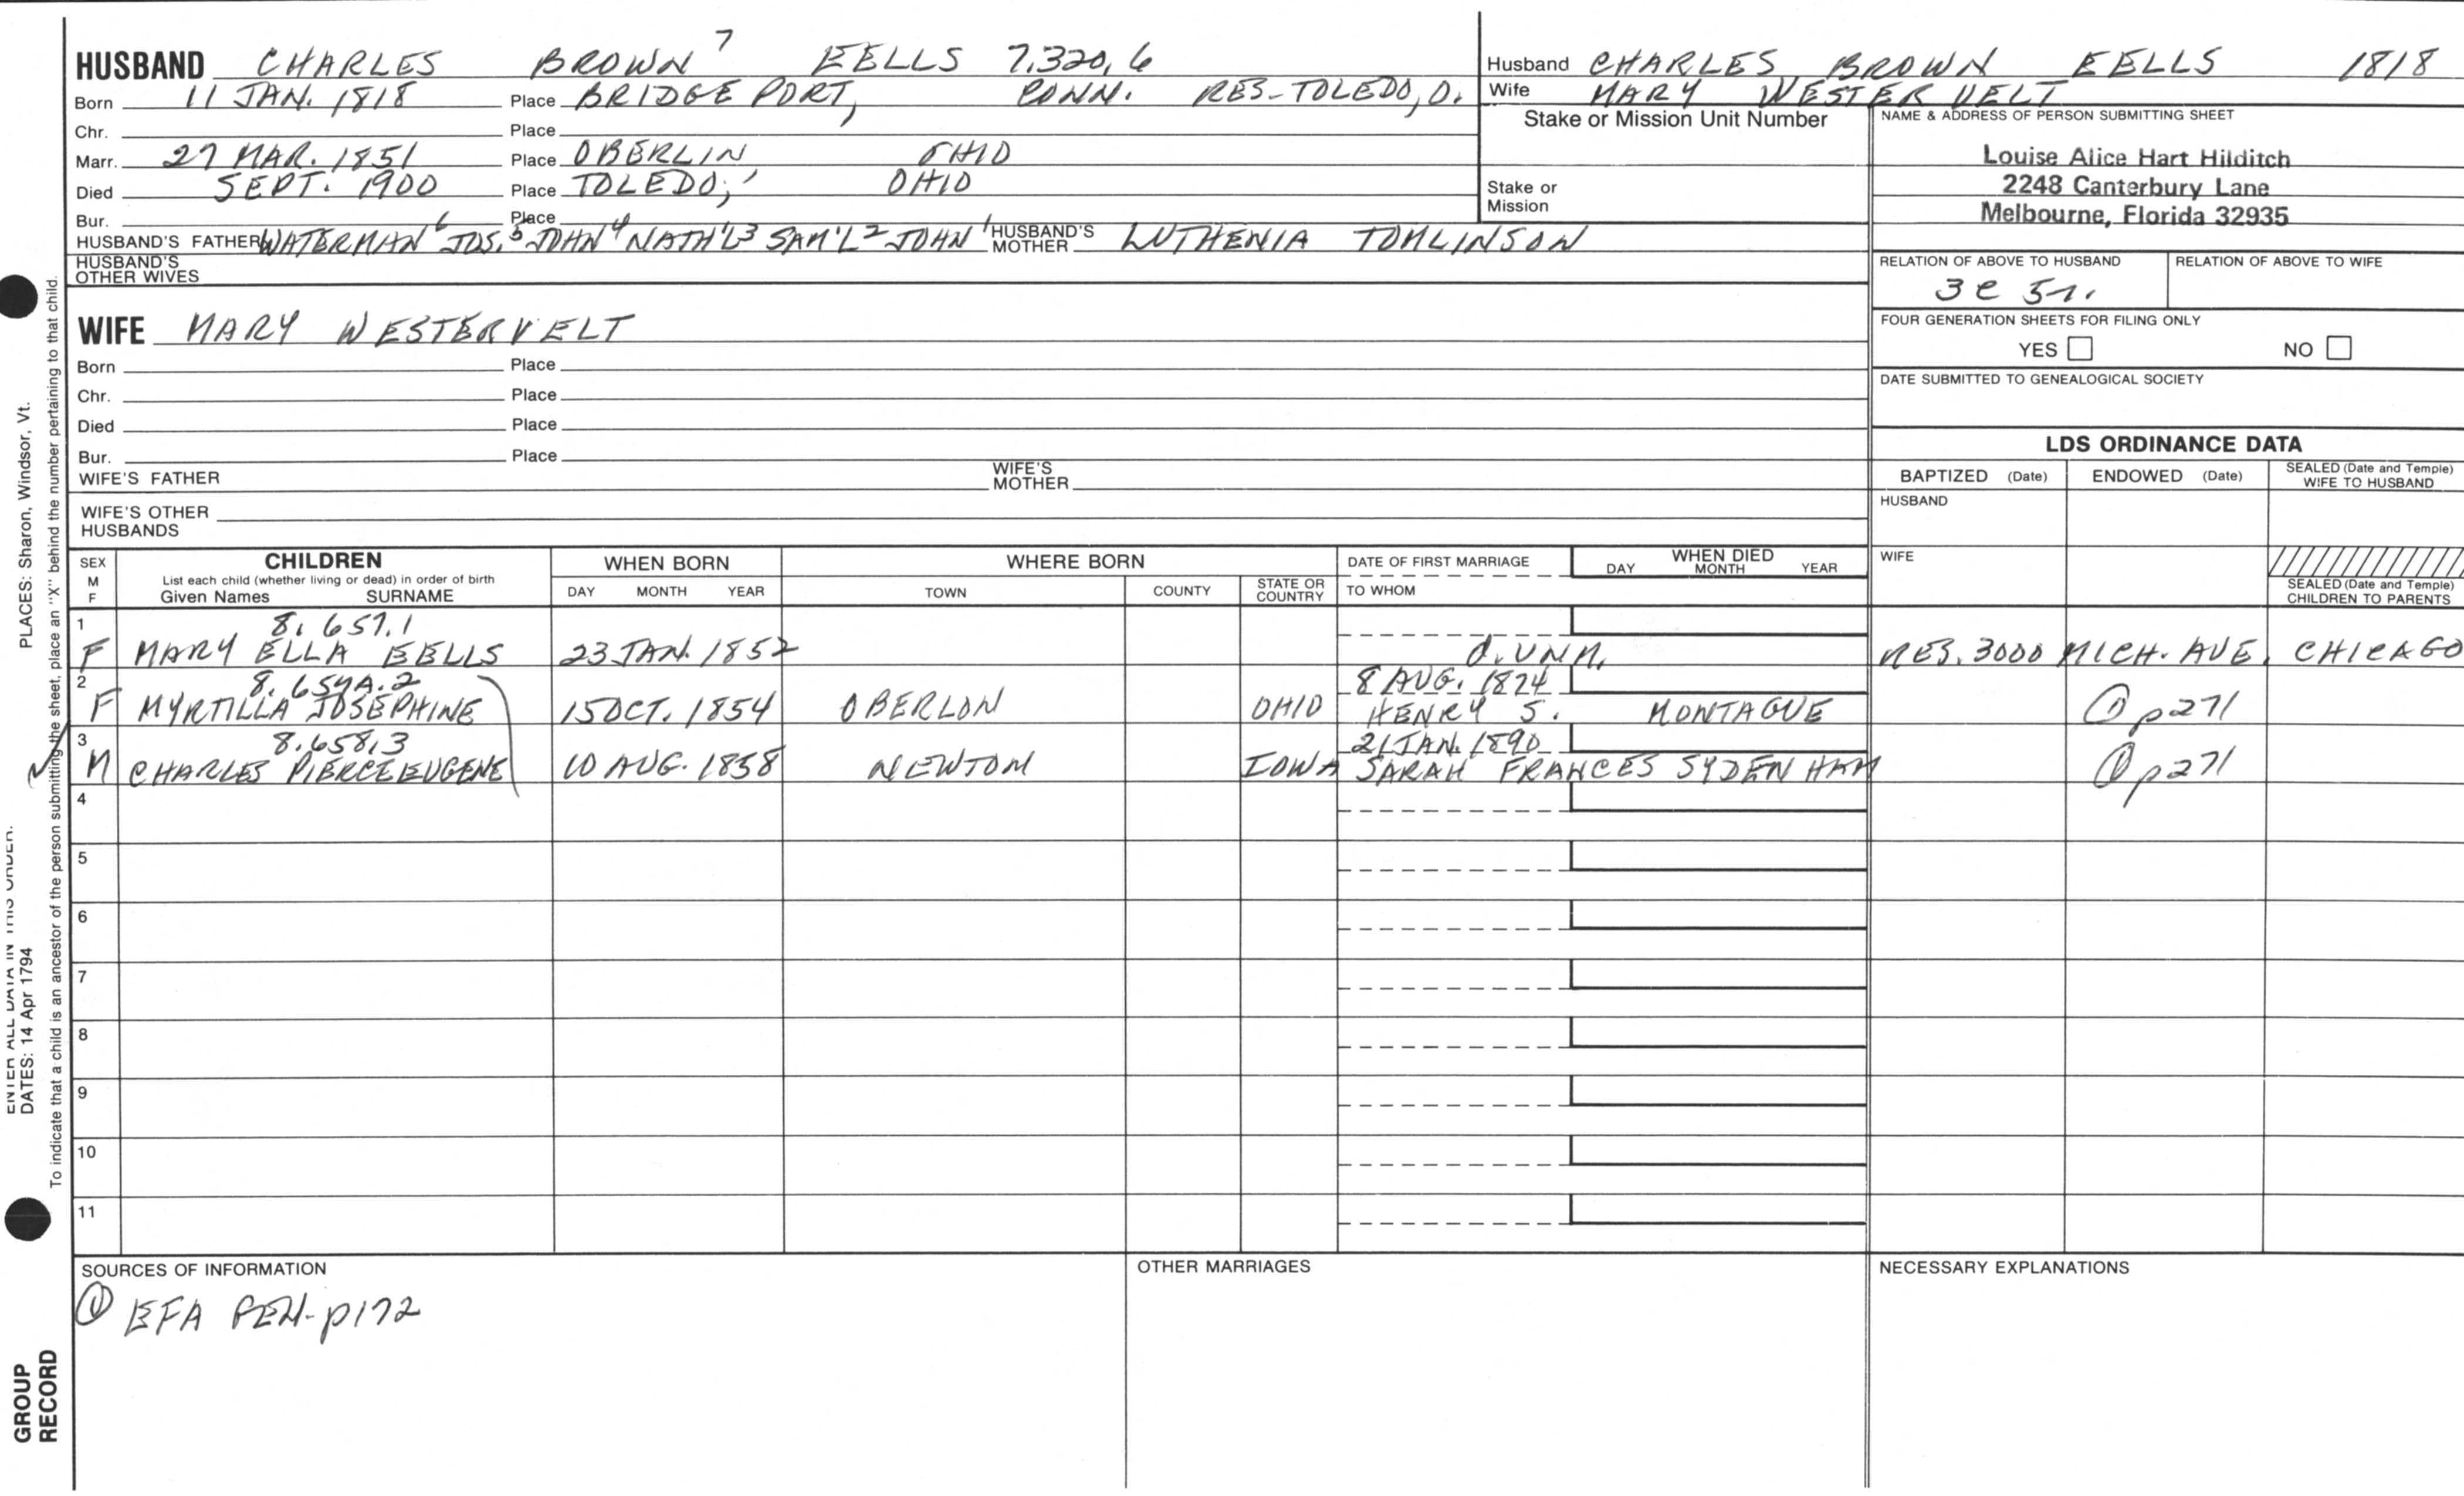 HUSBAND CHARLES BROWN 7 EELLS 7,320,6
Born 11 JAN. 1818 Place BRIDGEPORT, CONN. RES-TOLEDO, O.
Chr. Place
Marr. 27 MAR. 1851 Place OBERLIN OHIO
Died SEPT. 1900 Place TOLEDO, OHIO
Bur. Place
HUSBAND'S FATHER WATERMAN 6 JOS. 5 JOHN 4 NATH'L 3 SAM'L 2 JOHN 1 HUSBAND'S MOTHER LUTHENIA TOMLINSON
HUSBAND'S OTHER WIVES
Husband CHARLES BROWN EELLS 1818
Wife MARY WESTERVELT
Stake or Mission Unit Number
Stake or Mission
NAME & ADDRESS OF PERSON SUBMITTING SHEET
Louise Alice Hart Hilditch
2248 Canterbury Lane
Melbourne, Florida 32935
RELATION OF ABOVE TO HUSBAND RELATION OF ABOVE TO WIFE
3 C 5 r.
FOUR GENERATION SHEETS FOR FILING ONLY
YES NO
DATE SUBMITTED TO GENEALOGICAL SOCIETY
WIFE MARY WESTERVELT
Born Place
Chr. Place
Died Place
Bur. Place
WIFE'S FATHER WIFE'S MOTHER
WIFE'S OTHER HUSBANDS
LDS ORDINANCE DATA
BAPTIZED (Date) ENDOWED (Date) SEALED (Date and Temple) WIFE TO HUSBAND
HUSBAND
WIFE
SEALED (Date and Temple) CHILDREN TO PARENTS
SEX M F CHILDREN WHEN BORN WHERE BORN DATE OF FIRST MARRIAGE WHEN DIED
List each child (whether living or dead) in order of birth
Given Names SURNAME DAY MONTH YEAR TOWN COUNTY STATE OR COUNTRY TO WHOM DAY MONTH YEAR
1 8. 657.1
F MARY ELLA EELLS 23 JAN. 1852 d. UNM. RES. 3000 MICH. AVE. CHICAGO
2 8. 657A.2 8 AUG. 1874
F MYRTILLA JOSEPHINE 15 OCT. 1854 OBERLON OHIO HENRY S. MONTAGUE ① p271
3 8.658,3 21 JAN. 1890
M CHARLES PIERCE EUGENE 10 AUG. 1858 NEWTON IOWA SARAH FRANCES SYDENHAM ① p271
4
5
6
7
8
9
10
11
SOURCES OF INFORMATION OTHER MARRIAGES NECESSARY EXPLANATIONS
① EFA PEN-p172
PLACES: Sharon, Windsor, Vt.
To indicate that a child is an ancestor of the person submitting the sheet, place an "X" behind the number pertaining to that child.
ENTER ALL DATA IN THIS ORDER:
DATES: 14 Apr 1794
GROUP
RECORD